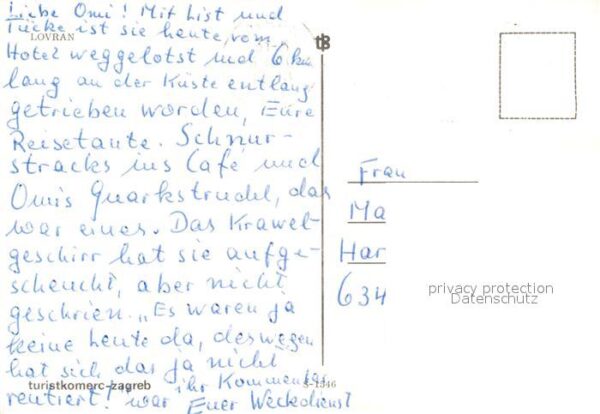 Liebe Omi! Mit List und
Tücke ist sie heute, vom
LOVRAN
Hotel weggelotst und 6 km
lang an der Küste entlang
getrieben worden, Eure
Reisetante. Schnur-
stracks ins Café und
Omis Quarkstrudel, das
war eines. Das Krawel-
geschirr hat sie aufge-
scheucht, aber nicht
geschrien. „Es waren ja
keine Leute da, deswegen
hat sich das ja nicht
rentiert!" war ihr Kommentar
Euer Weckdienst
turistkomerc-zagreb
S-1346
tß
Frau
Ma
Har
634
privacy protection
Datenschutz